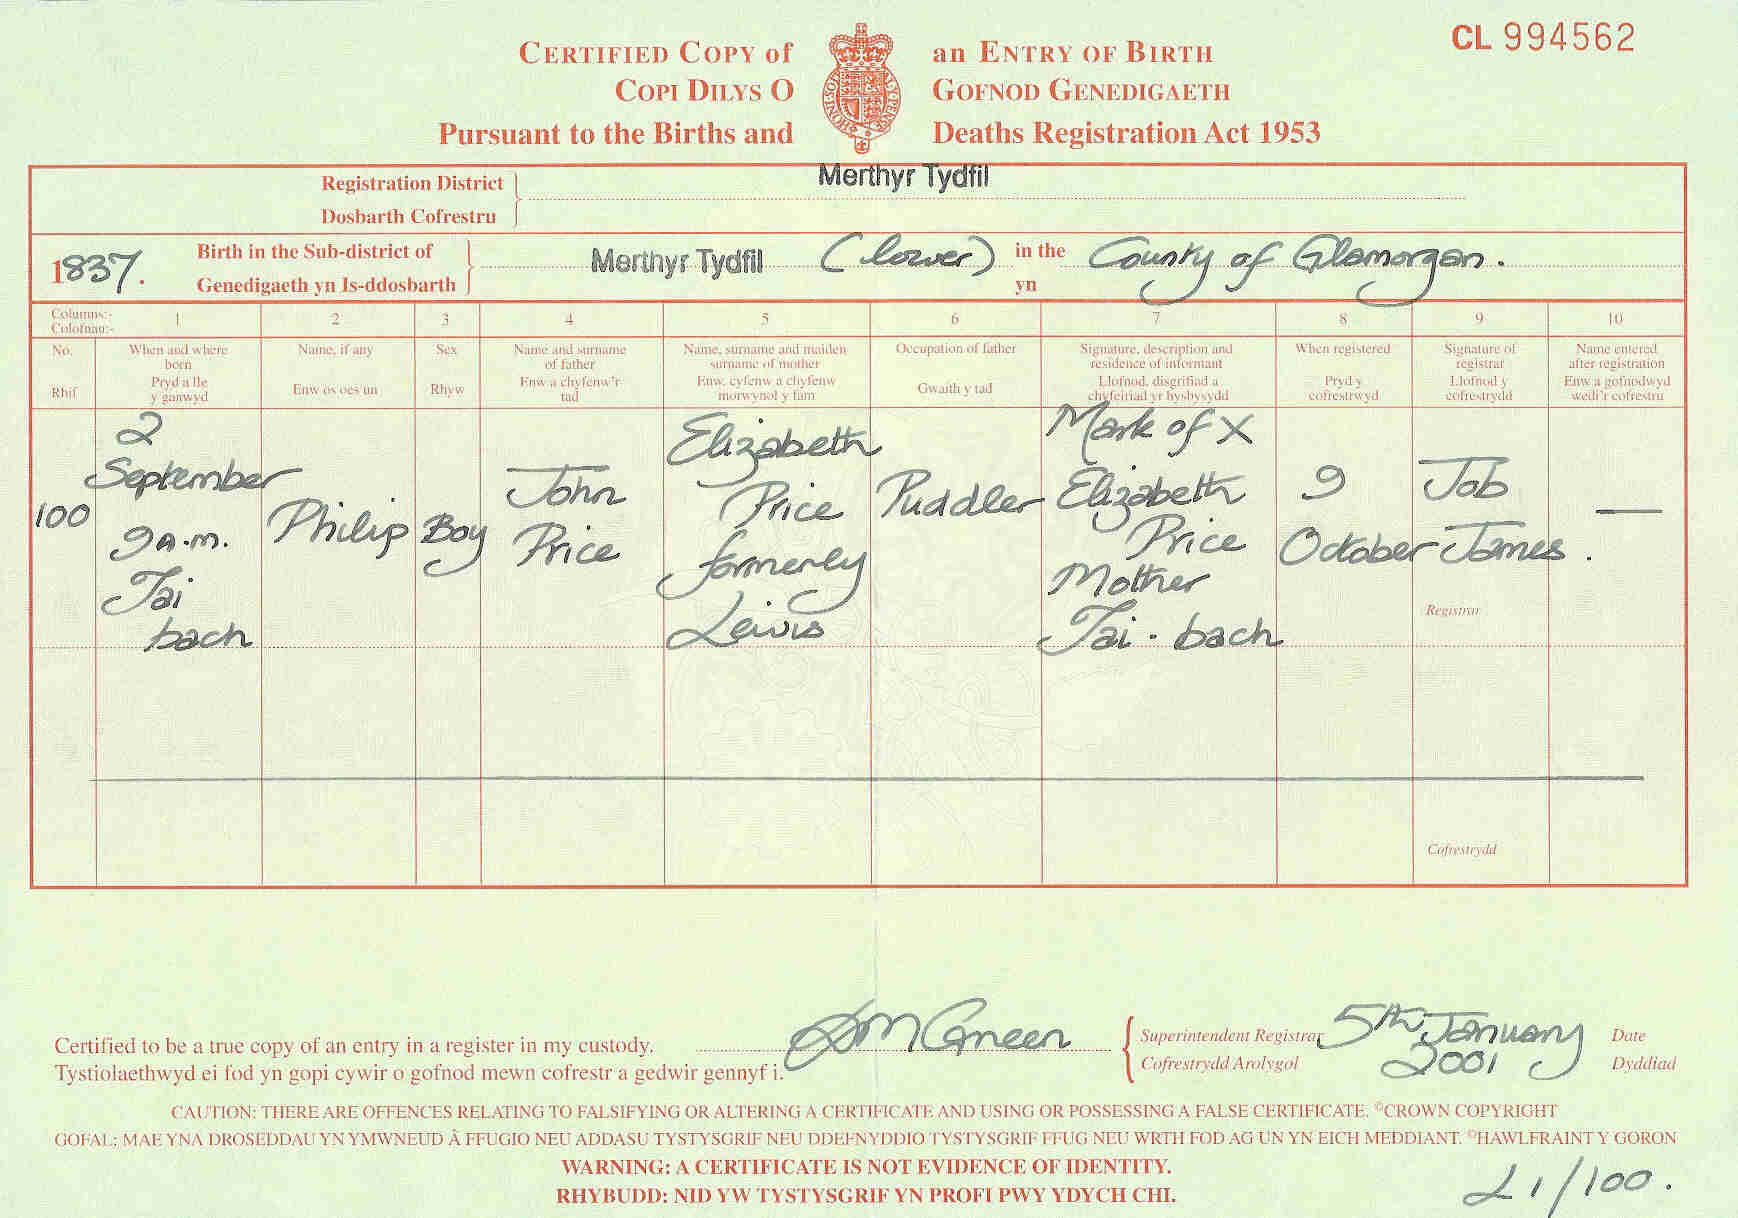 CL 994562
CERTIFIED COPY of an ENTRY OF BIRTH
COPI DILYS O GOFNOD GENEDIGAETH
Pursuant to the Births and Deaths Registration Act 1953
HONI·SOIT Y·PENSE
Registration District Merthyr Tydfil
Dosbarth Cofrestru
1837. Birth in the Sub-district of Merthyr Tydfil (lower) in the County of Glamorgan.
Genedigaeth yn Is-ddosbarth yn
Columns:- 1 2 3 4 5 6 7 8 9 10
Colofnau:-
No. When and where Name, if any Sex Name and surname Name, surname and maiden Occupation of father Signature, description and When registered Signature of Name entered
born of father surname of mother residence of informant registrar after registration
Rhif Pryd a lle Enw os oes un Rhyw Enw a chyfenw'r Enw, cyfenw a chyfenw Gwaith y tad Llofnod, disgrifiad a Pryd y Llofnod y Enw a gofnodwyd
y ganwyd tad morwynol y fam chyfeiriad yr hysbysydd cofrestrwyd cofrestrydd wedi'r cofrestru
2 Elizabeth Mark of X
September John Price Puddler Elizabeth 9 Job
100 9 a.m. Philip Boy Price formerly Price October James —
Tai Mother Registrar
bach Lewis Tai-bach
Cofrestrydd
Certified to be a true copy of an entry in a register in my custody. Superintendent Registrar 5th January Date
Tystiolaethwyd ei fod yn gopi cywir o gofnod mewn cofrestr a gedwir gennyf i. Cofrestrydd Arolygol 2001 Dyddiad
CAUTION: THERE ARE OFFENCES RELATING TO FALSIFYING OR ALTERING A CERTIFICATE AND USING OR POSSESSING A FALSE CERTIFICATE. ©CROWN COPYRIGHT
GOFAL: MAE YNA DROSEDDAU YN YMWNEUD Â FFUGIO NEU ADDASU TYSTYSGRIF NEU DDEFNYDDIO TYSTYSGRIF FFUG NEU WRTH FOD AG UN YN EICH MEDDIANT. ©HAWLFRAINT Y GORON
WARNING: A CERTIFICATE IS NOT EVIDENCE OF IDENTITY.
RHYBUDD: NID YW TYSTYSGRIF YN PROFI PWY YDYCH CHI.
L1/100.